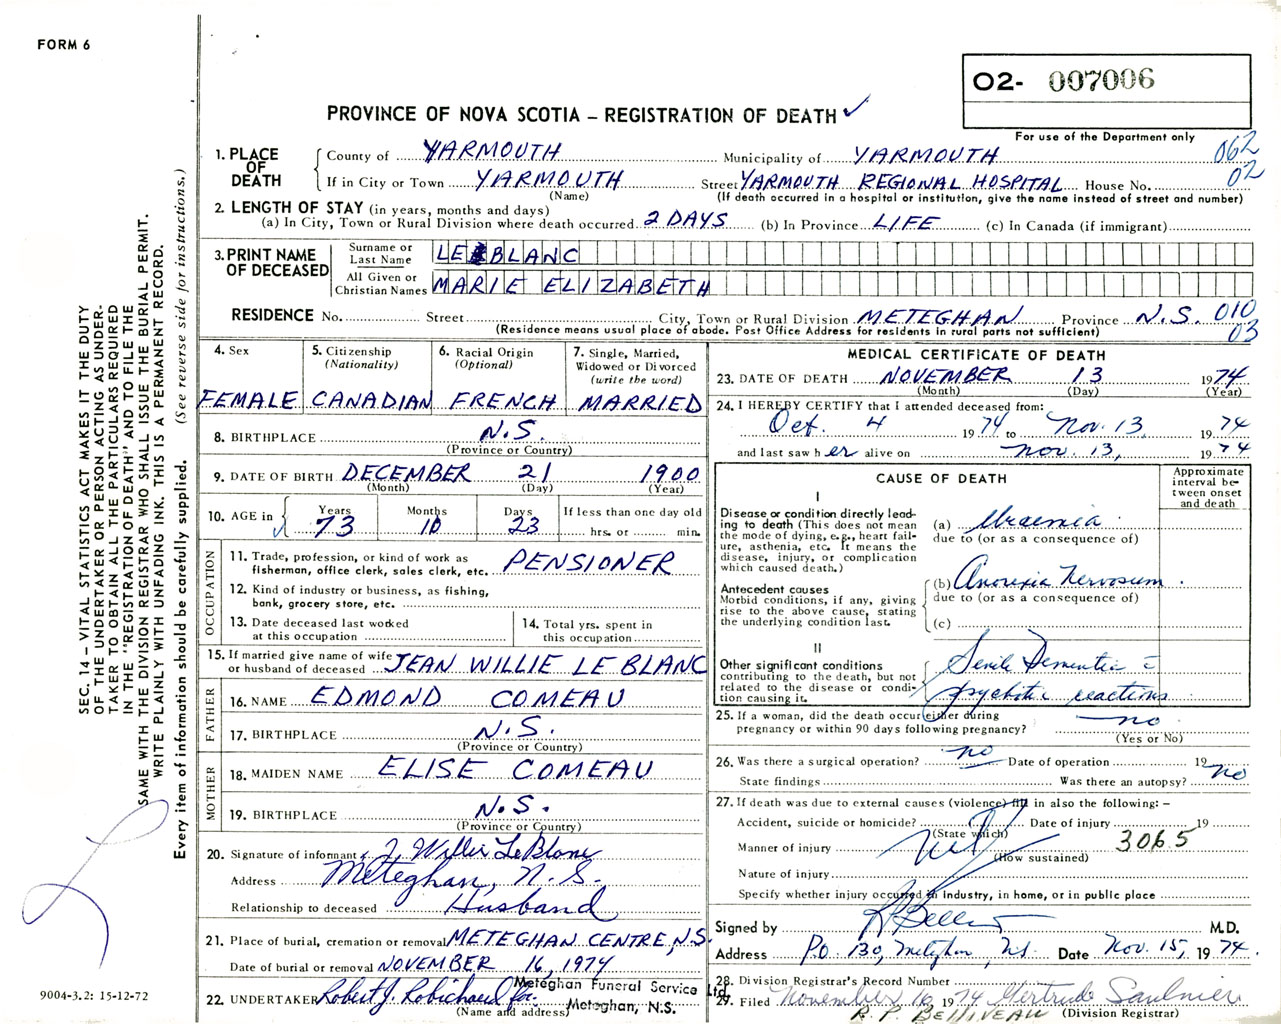 FORM 6
02- 007006
PROVINCE OF NOVA SCOTIA – REGISTRATION OF DEATH ✓
For use of the Department only
062
02
1. PLACE OF DEATH
County of YARMOUTH Municipality of YARMOUTH
If in City or Town YARMOUTH Street YARMOUTH REGIONAL HOSPITAL House No.
(Name) (If death occurred in a hospital or institution, give the name instead of street and number)
2. LENGTH OF STAY (in years, months and days)
(a) In City, Town or Rural Division where death occurred 2 DAYS (b) In Province LIFE (c) In Canada (if immigrant)
3. PRINT NAME OF DECEASED
Surname or Last Name LE BLANC
All Given or Christian Names MARIE ELIZABETH
RESIDENCE No. Street City, Town or Rural Division METEGHAN Province N.S. 010
(Residence means usual place of abode. Post Office Address for residents in rural parts not sufficient) 03
4. Sex FEMALE
5. Citizenship (Nationality) CANADIAN
6. Racial Origin (Optional) FRENCH
7. Single, Married, Widowed or Divorced (write the word) MARRIED
8. BIRTHPLACE N.S.
(Province or Country)
9. DATE OF BIRTH DECEMBER 21 1900
(Month) (Day) (Year)
10. AGE in Years 73 Months 10 Days 23 If less than one day old hrs. or min.
OCCUPATION
11. Trade, profession, or kind of work as fisherman, office clerk, sales clerk, etc. PENSIONER
12. Kind of industry or business, as fishing, bank, grocery store, etc.
13. Date deceased last worked at this occupation
14. Total yrs. spent in this occupation
15. If married give name of wife or husband of deceased JEAN WILLIE LE BLANC
FATHER
16. NAME EDMOND COMEAU
17. BIRTHPLACE N.S.
(Province or Country)
MOTHER
18. MAIDEN NAME ELISE COMEAU
19. BIRTHPLACE N.S.
(Province or Country)
20. Signature of informant J. Willie LeBlanc
Address Meteghan, N.S.
Relationship to deceased Husband
21. Place of burial, cremation or removal METEGHAN CENTRE, N.S.
Date of burial or removal NOVEMBER 16, 1974
22. UNDERTAKER Robert J. Robichaud for Meteghan Funeral Service Ltd.
(Name and address) Meteghan, N.S.
MEDICAL CERTIFICATE OF DEATH
23. DATE OF DEATH NOVEMBER 13 1974
(Month) (Day) (Year)
24. I HEREBY CERTIFY that I attended deceased from:
Oct. 4 1974 to Nov. 13, 1974
and last saw her alive on Nov. 13, 1974
CAUSE OF DEATH
Approximate interval between onset and death
I
Disease or condition directly leading to death (This does not mean the mode of dying, e.g., heart failure, asthenia, etc. It means the disease, injury, or complication which caused death.)
(a) Uraemia
due to (or as a consequence of)
Antecedent causes
Morbid conditions, if any, giving rise to the above cause, stating the underlying condition last.
(b) Anorexia Nervosum.
due to (or as a consequence of)
(c)
II
Other significant conditions contributing to the death, but not related to the disease or condition causing it.
Senile Dementia c̄
psychotic reactions
25. If a woman, did the death occur either during pregnancy or within 90 days following pregnancy? no
(Yes or No)
26. Was there a surgical operation? no Date of operation 19
State findings Was there an autopsy? no
27. If death was due to external causes (violence) fill in also the following: –
Accident, suicide or homicide? Date of injury 19
(State which)
Manner of injury 3065
(How sustained)
Nature of injury
Specify whether injury occurred in Industry, in home, or in public place
Signed by M.D.
Address P.O. 130, Meteghan, N.S. Date Nov. 15, 1974.
28. Division Registrar's Record Number
29. Filed November 16 1974 Gertrude Saulnier
R.P. BELLIVEAU (Division Registrar)
SEC. 14 – VITAL STATISTICS ACT MAKES IT THE DUTY
OF THE UNDERTAKER OR PERSON ACTING AS UNDER-
TAKER TO OBTAIN ALL THE PARTICULARS REQUIRED
IN THE "REGISTRATION OF DEATH" AND TO FILE THE
SAME WITH THE DIVISION REGISTRAR WHO SHALL ISSUE THE BURIAL PERMIT.
WRITE PLAINLY WITH UNFADING INK. THIS IS A PERMANENT RECORD.
Every item of information should be carefully supplied. (See reverse side for instructions.)
9004-3.2: 15-12-72